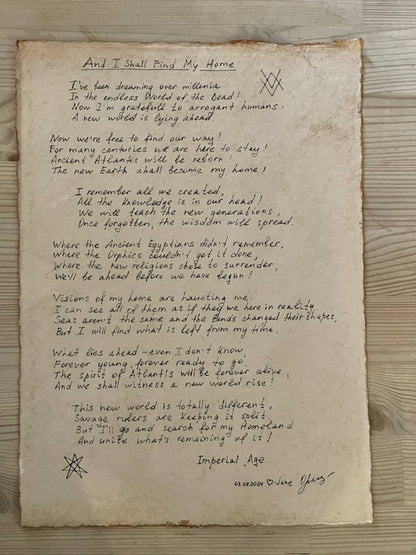 And I Shall Find My Home
I've been dreaming over millenia
In the endless World of the Dead!
Now I'm gratefull to arrogant humans:
A new world is lying ahead.
Now we're free to find our way!
For many centuries we are here to stay!
Ancient Atlantis will be reborn!
The new Earth shall become my home!
I remember all we created,
All the knowledge is in our head!
We will teach the new generations,
Once forgotten, the wisdom will spread.
Where the Ancient Egyptians didn't remember,
Where the Orphics couldn't get it done,
Where the new religions chose to surrender,
We'll be ahead before we have begun!
Visions of my home are haunting me.
I can see all of them as if they we here in reality.
Seas aren't the same and the lands changed their shapes,
But I will find what is left from my time.
What lies ahead – even I don't know,
Forever young, forever ready to go
The spirit of Atlantis will be forever alive,
And we shall witness a new world rise!
This new world is totally different,
Savage rulers are keeping it split,
But I'll go and search for my Homeland
And unite what's remaining of it!
Imperial Age
03.08.2024 ♡ Jane